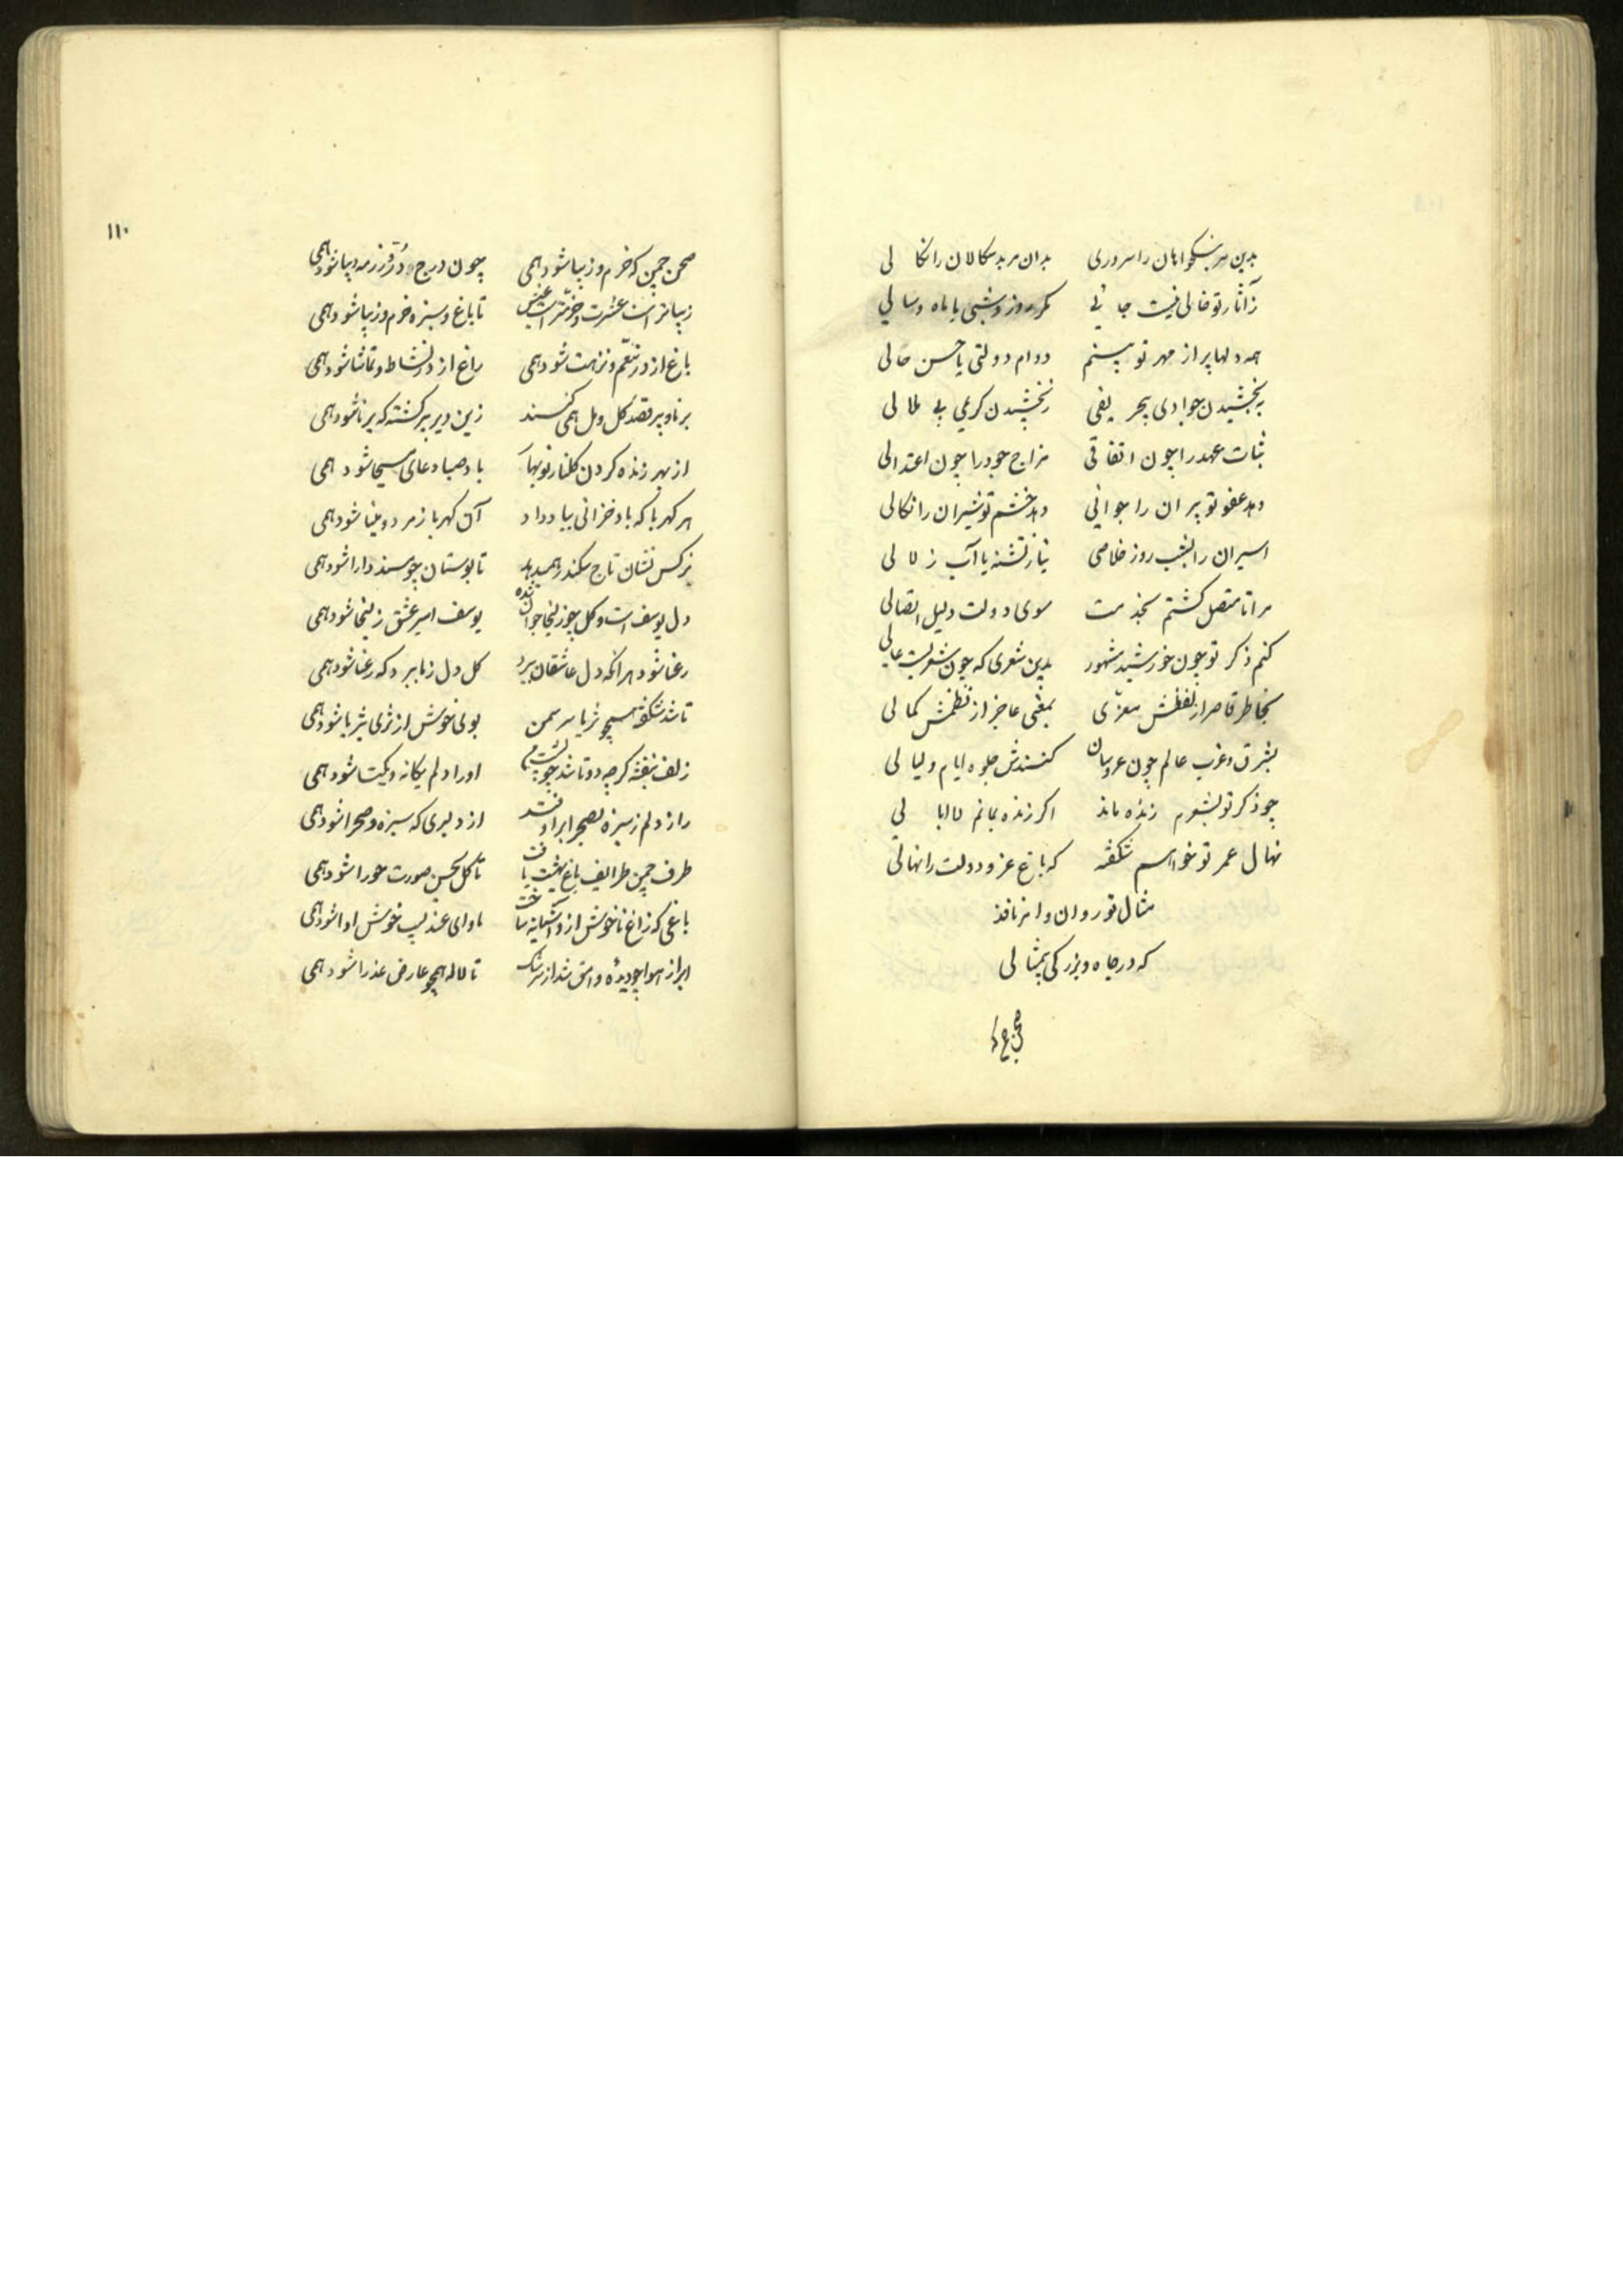 بدین مر نیکخواهان را سروری بدان مر بدسکالان را نکالی
ز آثار تو خالی نیست جائی مکر روز و شبی یا ماه و سالی
همه دلها پر از مهر تو بینم دوام دولتی یا حسن حالی
به بخشیدن جوادی بی
ثبات عهد را چون اتفاقی مزاج جود را چون اعتدالی
دهد عفو تو پیران را جوانی دهد خشم تو شیران را نکالی
اسیران را بشب روز خلاصی نیاز تشنه یا آب زلالی
مرا تا متصل کشتم بخدمت سوی دولت دلیل اتصالی
کنم ذکر تو چون خورشید مشهور بدین شعری که چون شعریست عالی
بخاطر قاصر از لفظش معزی بمعنی عاجز از نظمش کمالی
بشرق و غرب عالم چون عروسان کنندش جلوه ایام و لیالی
چو ذکر تو بشعرم زنده ماند اکر زنده بمانم لاابالی
نهال عمر تو خواهم شکفته که باغ عز و دولت را نهالی
مثال تو روان و امر نافذ
که در جاه و بزرکی بیمثالی
صحن چمن که
صحن چمن که خرم و زیبا شود همی چون درج در و زرمه دیبا شود همی
زیباتر است عشرت و خوشتر است عیش تا باغ و سبزه خرم و زیبا شود همی
باغ از در تنعم و نزهت شود همی راغ از در نشاط و تماشا شود همی
برنا و پیر قصد کل و مل همی کنند زین دیر پیر کشته که برنا شود همی
از بهر زنده کردن کلنار نوبهار باد صبا دعای مسیحا شود همی
هر کهربا که باد خزانی بباد داد آن کهربا زمرد و مینا شود همی
نرکس نشان تاج سکندر همی دهد تا بوستان چو مسند دارا شود همی
دل یوسف است و کل چو زلیخا جوان شده یوسف اسیر عشق زلیخا شود همی
رعنا شود هر آنکه دل عاشقان برد کل دل ز ما ببرد که رعنا شود همی
تا شد شکفته همچو ثریا سر سمن بوئی خوش از ثری بثریا شود همی
زلف بنفشه کرچه دوتا شد چو پشت من او را دلم یکانه و یکتا شود همی
راز دلم ز سبزه بصحرا برافتد از دلبری که سبزه و صحرا شود همی
طرف چمن طرایف باغ بهشت یافت تا کل بحسن صورت حورا شود همی
باغی که زاغ ناخوش ازو آشیانه ساخت ماوای عندلیب خوش آوا شود همی
ابر از هوا چو دیده وامق شد از سرشک تا لاله همچو عارض عذرا شود همی
۱۱۰